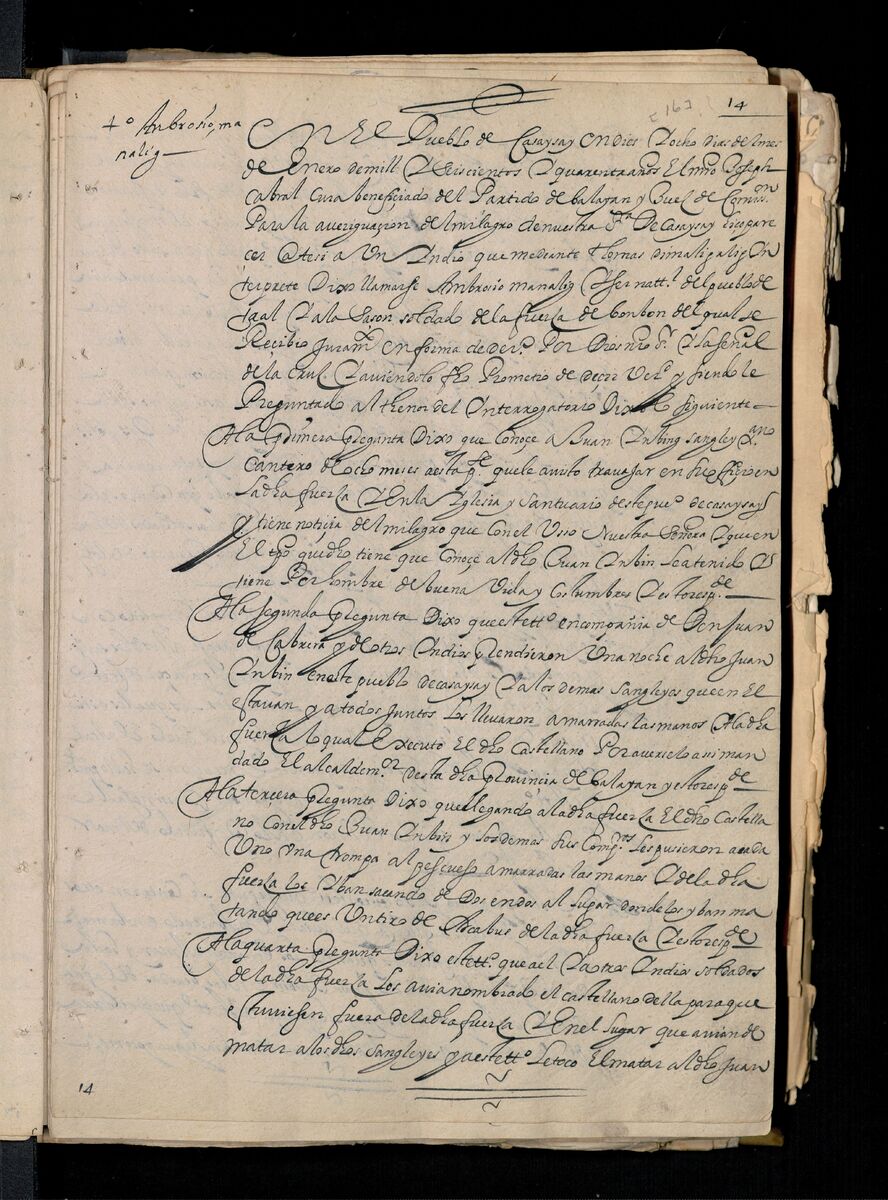 14
[163]
4º Ambrosio ma
nalig
En El Pueblo de Casaysay en dies y ocho dias del mes
de Enero de mill y seiscientos y quarenta años El mro Joseph
Cabral Cura beneficiado del Partido de balayan y Juez de Comisn
Para la averiguaçion del milagro de nuestra Sra De Casaysay hiço pare
cer ante si a Un Yndio que mediante Thomas dimalipalip Yn
terprete Dixo llamarse Ambrosio manalig Y ser natl del pueblo de
taal Y a la sason soldado de la fuerza de bonbon del qual se
Recibio Juramto en forma de derº Por Dios nro Sr Y la señal
de la Cruz Y aviendolo fho Prometio de deçir Verd y siendole
Preguntado al thenor del Ynterrogatorio Dixo lo siguiente
A la primera pregunta Dixo que Conoçe a Juan Ynbing sangley Xano
Cantero de ocho meses a esta pte que le a visto travajar en su offiçio en
la dha fuerza Y en la Yglesia y Santuario deste pueº de casaysay
y tiene notiçia del milagro que con el Usso Nuestra Señora Y que en
El tpo que dho tiene que Conoçe al dho Juan Ynbin le a tenido Y
tiene Por hombre de buena Vida y Costumbres Y esto respde
A la segunda pregunta Dixo que este tto en compañia de Don Juan
de Cabrera y de otros Yndios prendieron Una noche al dho Juan
Ynbin en este pueblo de casaysay Y a los demas sangleyes que en El
estavan y a todos Juntos los llevaron amarradas las manos A la dha
fuerza lo qual Executo El dho Castellano Por averselo assi man
dado El alcalde mor desta dha provinçia de balayan y esto respde
A la terçera pregunta Dixo que llegando a la dha fuerza El dho Castella
no Con el dho Juan Ynbin y los demas sus Comps les pusieron a cada
Uno Una trompa al pescueso amarradas las manos Y de la dha
fuerza los Yban sacando de Dos en dos al lugar donde los yban ma
tando que es Un tiro de Arcabus de la dha fuerza Y esto respde
A la quarta pregunta Dixo este tto que a el Y a tres Yndios soldados
de la dha fuerza los avia nombrado el castellano della para que
estuviesen fuera de la dha fuerza Y en el lugar que avian de
matar a los dhos sangleyes y a este tto le toco El matar al dho Juan
14